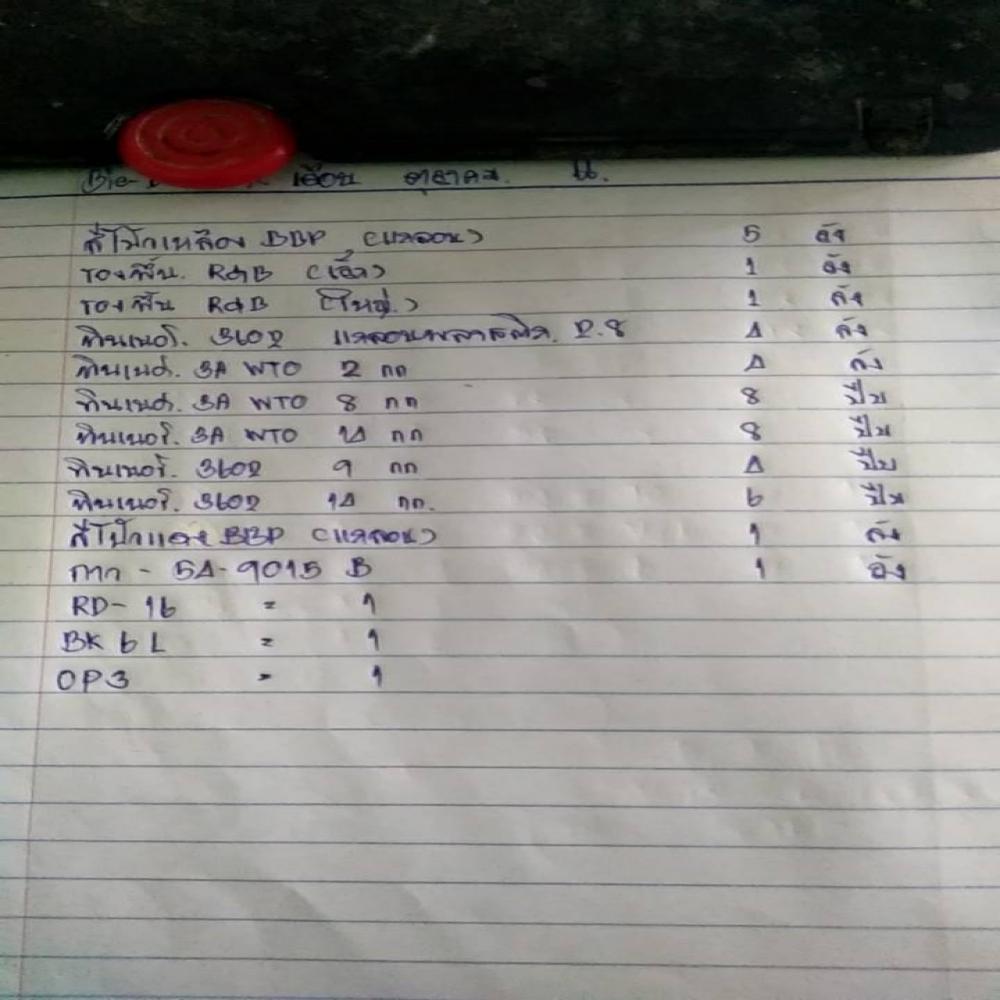 เดือน ตุลาคม น.
สีโป๊วเหลือง BBP (แกลลอน) 5 ลัง
รองพื้น. R&B (เล็ก) 1 ลัง
รองพื้น R&B (ใหญ่) 1 ลัง
ทินเนอร์. 3602 แกลลอนพลาสติก. 2.8 4 ลัง
ทินเนอร์. 3A WTO 2 กก 4 ลัง
ทินเนอร์. 3A WTO 8 กก 8 ปี๊บ
ทินเนอร์. 3A WTO 14 กก 8 ปี๊บ
ทินเนอร์. 3602 9 กก 4 ปี๊บ
ทินเนอร์. 3602 14 กก. 6 ปี๊บ
สีโป๊วแดง BBP (แกลลอน) 1 ลัง
กาก - 54-9015 B 1 ลัง
RD-16 = 1
BK 6 L = 1
OP3 = 1